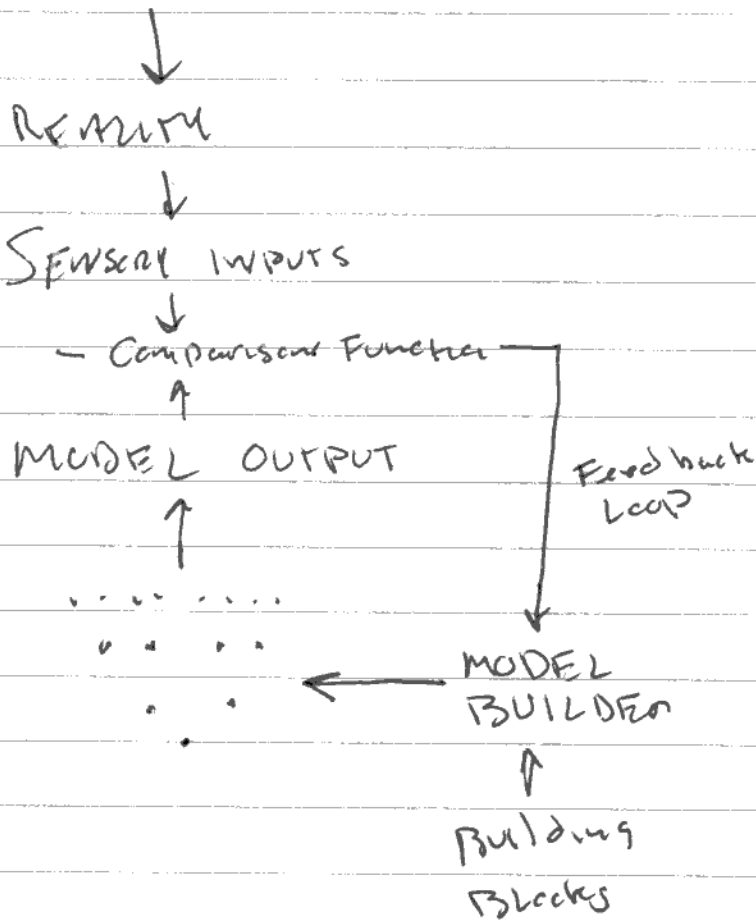 REALITY
SENSORY INPUTS
- Comparison Function
MODEL OUTPUT
Feedback
LOOP
MODEL
BUILDER
Building
Blocks